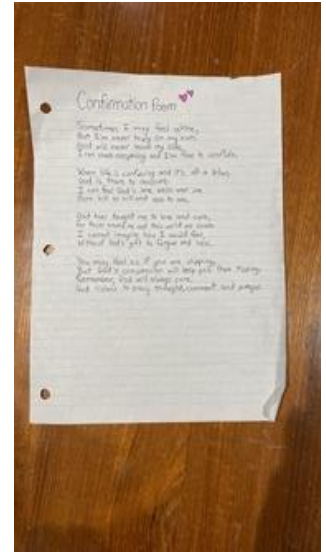 Confirmation Poem
Sometimes I may feel alone,
But I'm never truly on my own.
God will never leave my side,
I can share everything and I'm free to confide.
When life is confusing and it's all a blur,
God is there to
I can feel God's love, while
From hill to hill and sea to sea.
God has taught me to love and care,
For those around me and this world we share.
I cannot imagine how I would feel,
Without God's gift to forgive and heal.
You may feel as if you are slipping,
But God's compassion will keep you from
Remember, God will always care,
God listens to every thought, comment, and prayer.